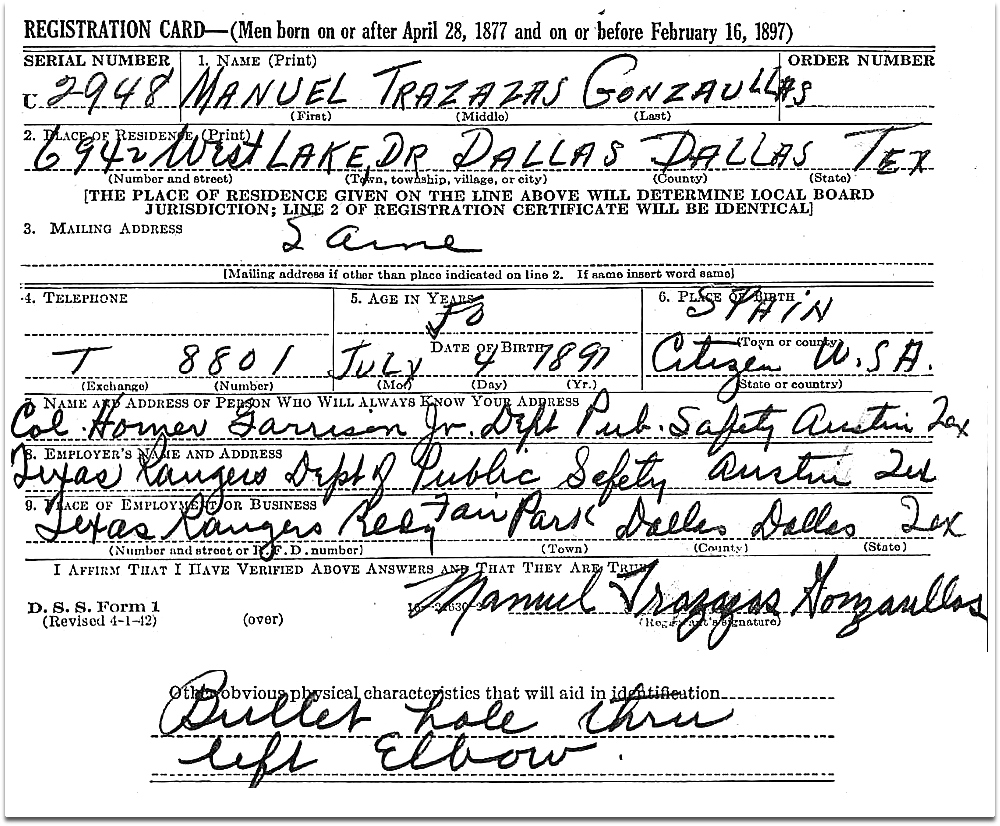 REGISTRATION CARD—(Men born on or after April 28, 1877 and on or before February 16, 1897)
SERIAL NUMBER 1. NAME (Print) ORDER NUMBER
U 2948 MANUEL TRAZAZAS GONZAULLAS
(First) (Middle) (Last)
2. PLACE OF RESIDENCE (Print)
6942 West LAKE, DR DALLAS DALLAS TEX
(Number and street) (Town, township, village, or city) (County) (State)
[THE PLACE OF RESIDENCE GIVEN ON THE LINE ABOVE WILL DETERMINE LOCAL BOARD
JURISDICTION; LINE 2 OF REGISTRATION CERTIFICATE WILL BE IDENTICAL]
3. MAILING ADDRESS
Same
[Mailing address if other than place indicated on line 2. If same insert word same]
4. TELEPHONE 5. AGE IN YEARS 6. PLACE OF BIRTH
50 SPAIN
DATE OF BIRTH (Town or county)
T 8801 JULY 4 1891 Citizen U.S.A.
(Exchange) (Number) (Mo.) (Day) (Yr.) (State or country)
7. NAME AND ADDRESS OF PERSON WHO WILL ALWAYS KNOW YOUR ADDRESS
Col. Homer Garrison Jr. Dept Pub. Safety Austin Tex
8. EMPLOYER'S NAME AND ADDRESS
Texas Rangers Dept of Public Safety Austin Tex
9. PLACE OF EMPLOYMENT OR BUSINESS
Texas Rangers Fair Park Dallas Dallas Tex
(Number and street or R. F. D. number) (Town) (County) (State)
I AFFIRM THAT I HAVE VERIFIED ABOVE ANSWERS AND THAT THEY ARE TRUE
Manuel Trazazas Gonzaullas
D. S. S. Form 1
(Revised 4-1-42) (over) (Registrant's signature)
Other obvious physical characteristics that will aid in identification
Bullet hole thru
left Elbow.